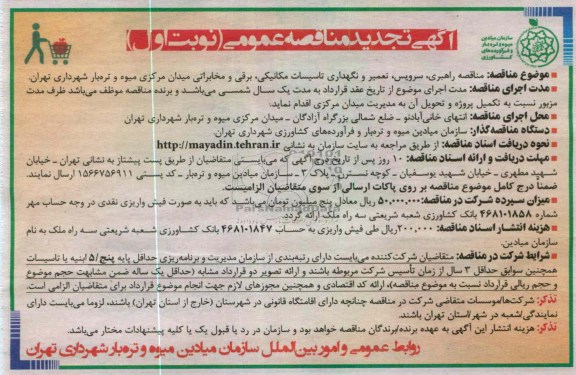 سازمان میادین
میوه و تره‌بار
و فرآورده‌های
کشاورزی
آگهی تجدید مناقصه عمومی (نوبت اول)
موضوع مناقصه: مناقصه راهبری، سرویس، تعمیر و نگهداری تاسیسات مکانیکی، برقی و مخابراتی میدان مرکزی میوه و تره‌بار شهرداری تهران.
مدت اجرای مناقصه: مدت اجرای موضوع از تاریخ عقد قرارداد به مدت یک سال شمسی می‌باشد و برنده مناقصه موظف می‌باشد ظرف مدت
مزبور نسبت به تکمیل پروژه و تحویل آن به مدیریت میدان مرکزی اقدام نماید.
محل اجرای مناقصه: انتهای خانی‌آبادنو - ضلع شمالی بزرگراه آزادگان - میدان مرکزی میوه و تره‌بار شهرداری تهران
دستگاه مناقصه‌گذار: سازمان میادین میوه و تره‌بار و فرآورده‌های کشاورزی شهرداری تهران.
نحوه دریافت اسناد مناقصه: از طریق مراجعه به سایت سازمان به نشانی http://mayadin.tehran.ir
مهلت دریافت و ارائه اسناد مناقصه: ۱۰ روز پس از تاریخ درج آگهی که می‌بایستی متقاضیان از طریق پست پیشتاز به نشانی تهران - خیابان
شهید مطهری - خیابان شهید یوسفیان - کوچه نسترن - پلاک ۳ - سازمان میادین میوه و تره‌بار - کد پستی ۱۵۶۶۷۵۶۹۱۱ ارسال نمایند.
ضمنا درج کامل موضوع مناقصه بر روی پاکات ارسالی از سوی متقاضیان الزامیست.
میزان سپرده شرکت در مناقصه: ۵۰.۰۰۰.۰۰۰ ریال معادل پنج میلیون تومان می‌باشد که باید به صورت فیش واریزی نقدی در وجه حساب مهر
شماره ۴۶۸۱۰۱۸۵۸ بانک کشاورزی شعبه شریعتی سه راه ملک ارائه گردد.
هزینه انتشار اسناد مناقصه: ۲۰۰.۰۰۰ ریال طی فیش واریزی به حساب ۴۶۸۱۰۱۸۴۷ بانک کشاورزی شعبه شریعتی سه راه ملک به نام
سازمان میادین.
شرایط شرکت در مناقصه: متقاضیان شرکت‌کننده می‌بایست دارای رتبه‌بندی از سازمان مدیریت و برنامه‌ریزی حداقل پایه پنج/۵ ابنیه یا تاسیسات
همچنین سوابق حداقل ۳ سال از زمان تأسیس شرکت مربوطه باشند و ارائه تصویر دو قرارداد مشابه (حداقل یک ساله ضمن مشابهت حجم موضوع
و حجم ریالی قرارداد نسبت به موضوع مناقصه)، ارائه کد اقتصادی و همچنین مجوزهای لازم جهت انجام موضوع قرارداد برای متقاضیان الزامی است.
تذکر: شرکت‌ها/موسسات متقاضی شرکت در مناقصه چنانچه دارای اقامتگاه قانونی در شهرستان (خارج از استان تهران) باشند، لزوما می‌بایست دارای
نمایندگی/شعبه در شهر/استان تهران باشند.
تذکر: هزینه انتشار این آگهی به عهده برنده/برندگان مناقصه خواهد بود و سازمان در رد یا قبول یک یا کلیه پیشنهادات مختار می‌باشد.
روابط عمومی و امور بین‌الملل سازمان میادین میوه و تره‌بار شهرداری تهران